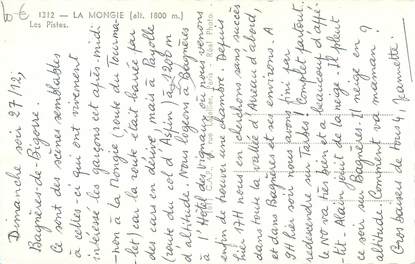 6€
1312 - LA MONGIE (alt. 1800 m.)
Les Pistes.
Dimanche soir 27/12,
Bagnères-de-Bigorre.
Ce sont des scènes semblables
à celles-ci qui ont vivement
intéressé les garçons cet après-midi
non à la Mongie (route du Tourma-
let) car la route était barrée par
des cars en dérive mais à Payolle
(route du col d'Aspin) à 1200m
d'altitude. Nous logeons à Bagnères
à l'Hôtel des Vignaux où nous venons
enfin de trouver une chambre. Depuis
hier 17H nous en cherchons sans succès
dans toute la vallée d'Arreau d'abord,
et dans Bagnères et ses environs. A
9H hier soir nous avons fini par
redescendre sur Tarbes! Complet partout.
le No va très bien et a beaucoup d'appé-
tit. Alain jouit de la neige. Il pleut
ce soir sur Bagnères. Il neige en
altitude. Comment va maman?
Gros baisers de tous 4. Jeannette.